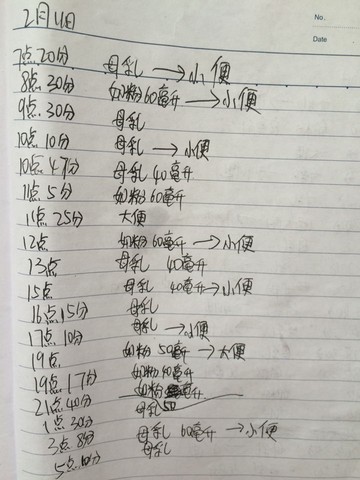 No.
Date
2月11日
7点20分 母乳 →小便
8点30分 奶粉60毫升→小便
9点30分 母乳
10点10分 母乳 →小便
10点47分 母乳40毫升
11点5分 奶粉60毫升
11点25分 大便
12点 奶粉60毫升→小便
13点 母乳 40毫升
15点 母乳 40毫升→小便
16点15分 母乳
17点10分 母乳 →小便
19点 奶粉 50毫升→大便
19点17分 奶粉40毫升
21点40分 奶粉 毫升
1点30分 母乳50
3点8分 母乳 60毫升→小便
5点10分 母乳